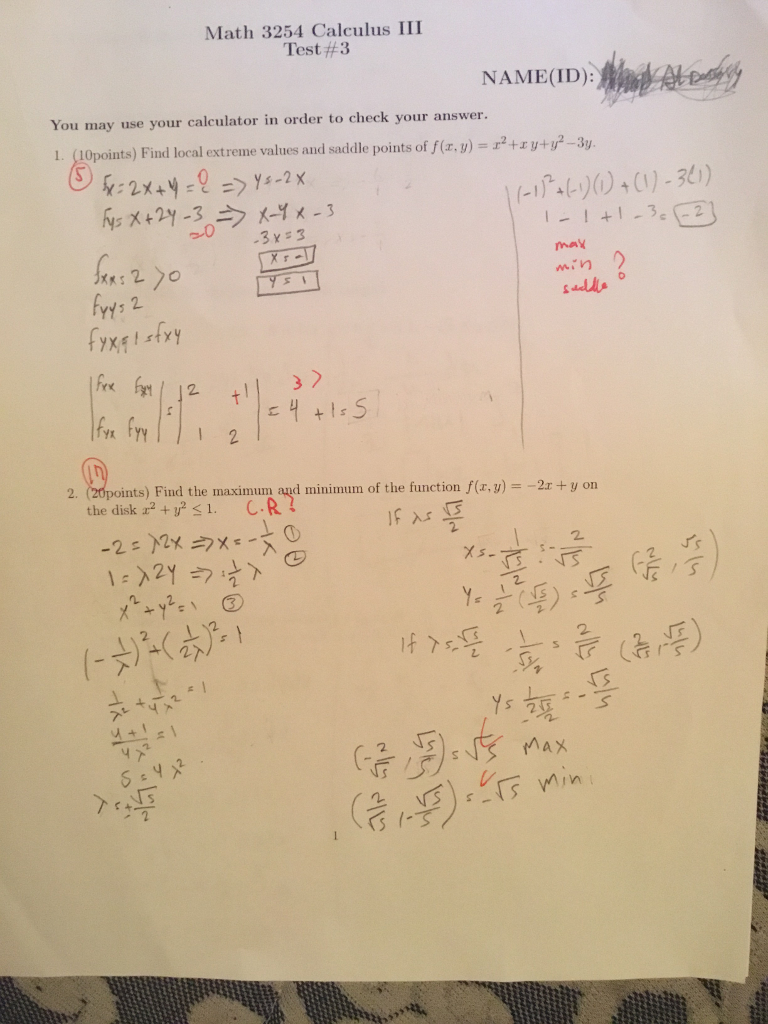 Math 3254 Calculus III
Test#3
NAME(ID):
You may use your calculator in order to check your answer.
1. (10points) Find local extreme values and saddle points of f(x, y) = x²+x y+y²−3y.
5
fx = 2x + y = 0 => y = -2x
fy = x + 2y - 3 => x - 4x - 3
=0
-3x = 3
x = -1
y = 1
fxx = 2 > 0
fyy = 2
fyx = 1 = fxy
| fxx fxy | = | 2 +1 | 3 >
| fyx fyy | | 1 2 | = 4 + 1 = 5
(-1)² + (-1)(1) + (1) - 3(1)
1 - 1 + 1 - 3 = -2
max
min ?
saddle
17
2. (20points) Find the maximum and minimum of the function f(x, y) = −2x + y on
the disk x² + y² ≤ 1. C.R?
-2 = λ2x => x = -1/λ ①
1 = λ2y => = 1/2 λ ②
x² + y² = 1 ③
(-1/λ)² + (1/2λ)² = 1
1/λ² + 1/4λ² = 1
4+1/4λ² = 1
5 = 4λ²
λ = ±√5/2
If λ = √5/2
x = -1/(√5/2) = -2/√5
y = 1/2 (√5/2) = √5/5 (-2/√5, √5/5)
If λ = -√5/2 -1/(√5/2) = 2/√5 (2/√5, -√5/5)
y = 1/(2√5/2) = -√5/5
(-2/√5, √5/5) = √5 max
(2/√5, -√5/5) = -√5 min
1